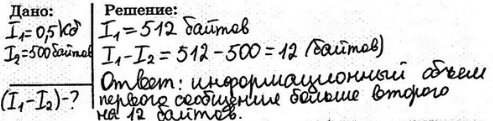 Дано:
I₁=0,5 Кб
I₂=500 байтов
(I₁-I₂)-?
Решение:
I₁=512 байтов
I₁-I₂=512-500=12 (байтов)
Ответ: информационный объем
первого сообщения больше второго
на 12 байтов.